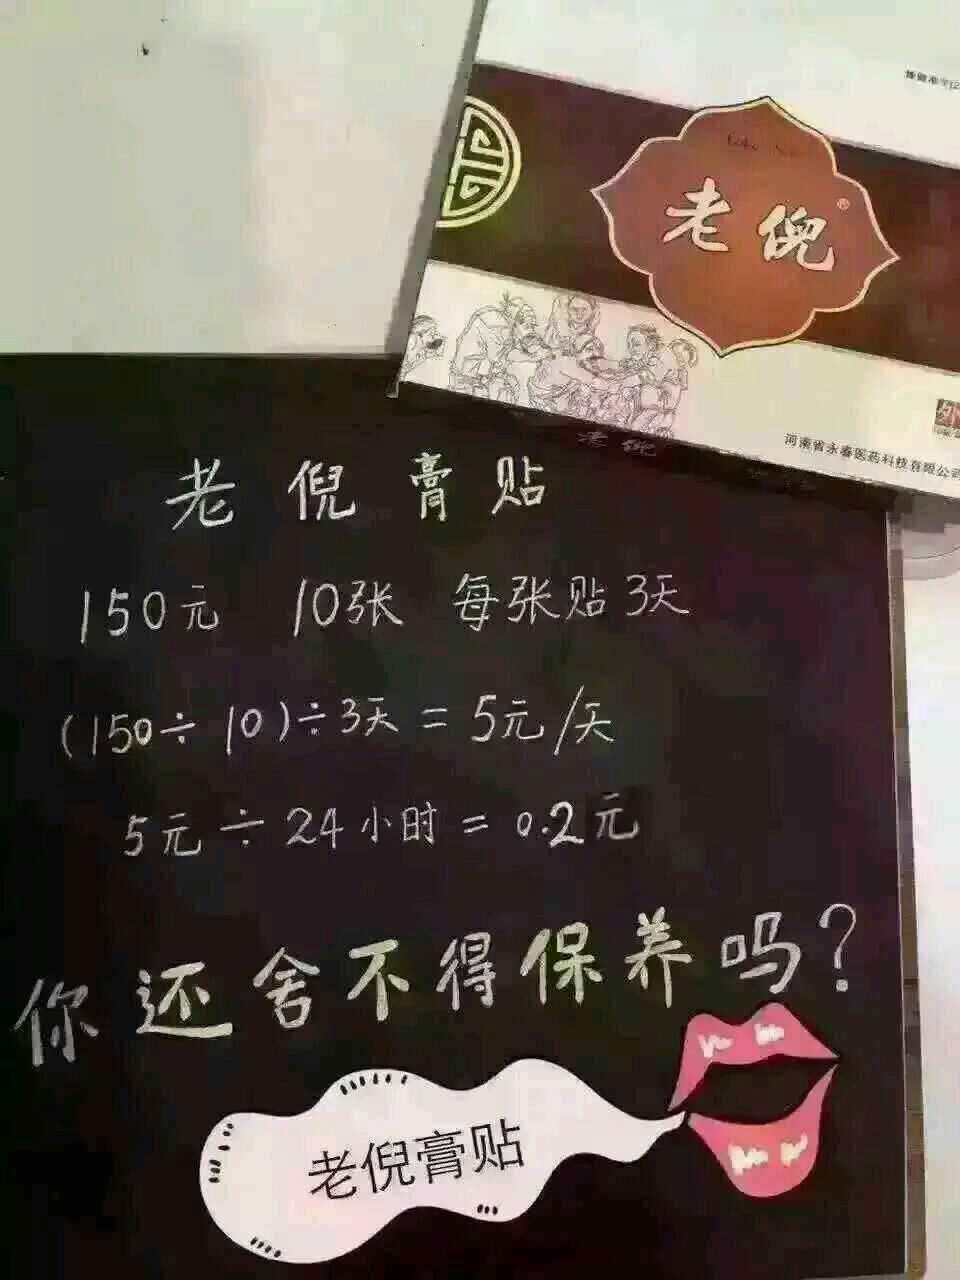 老倪®
河南省永春医药科技有限公司
老倪
老倪膏贴
150元 10张 每张贴3天
(150÷10)÷3天=5元/天
5元÷24小时=0.2元
你还舍不得保养吗?
老倪膏贴